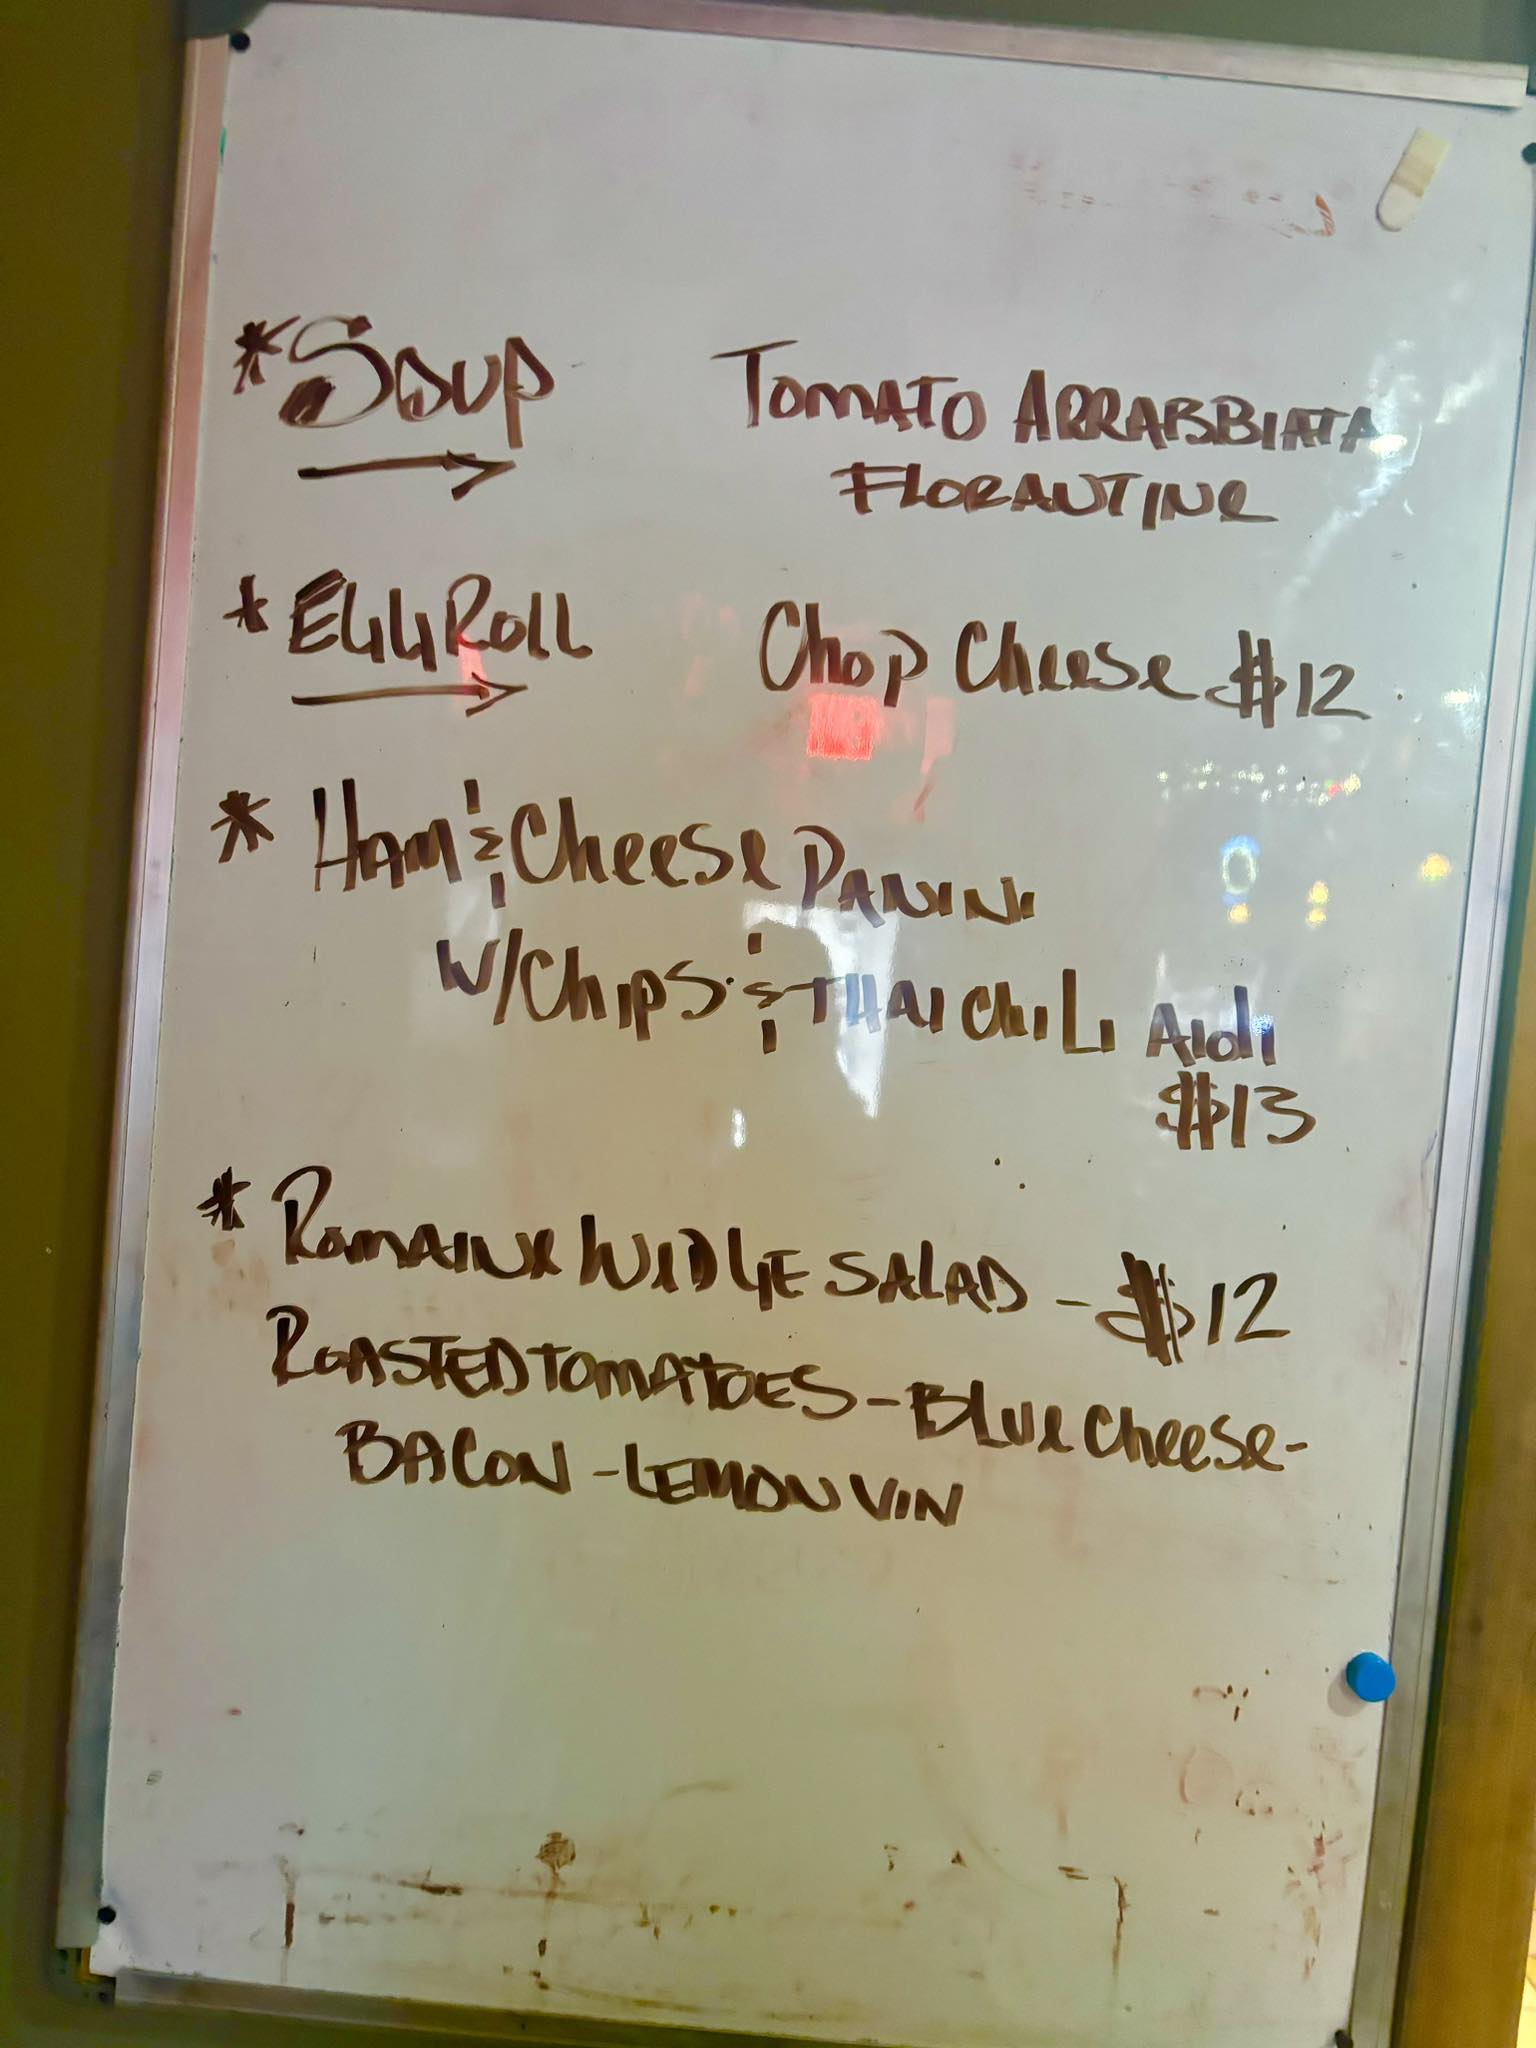 * Soup → TOMATO ARRABBIATA
FLORANTINE
* EGG ROLL → Chop Cheese $12
* HAM & Cheese PANINI
W/Chips & THAI CHILI Aioli
$13
* ROMAINE WEDGE SALAD - $12
ROASTED TOMATOES - BLUE Cheese -
BACON - LEMON VIN